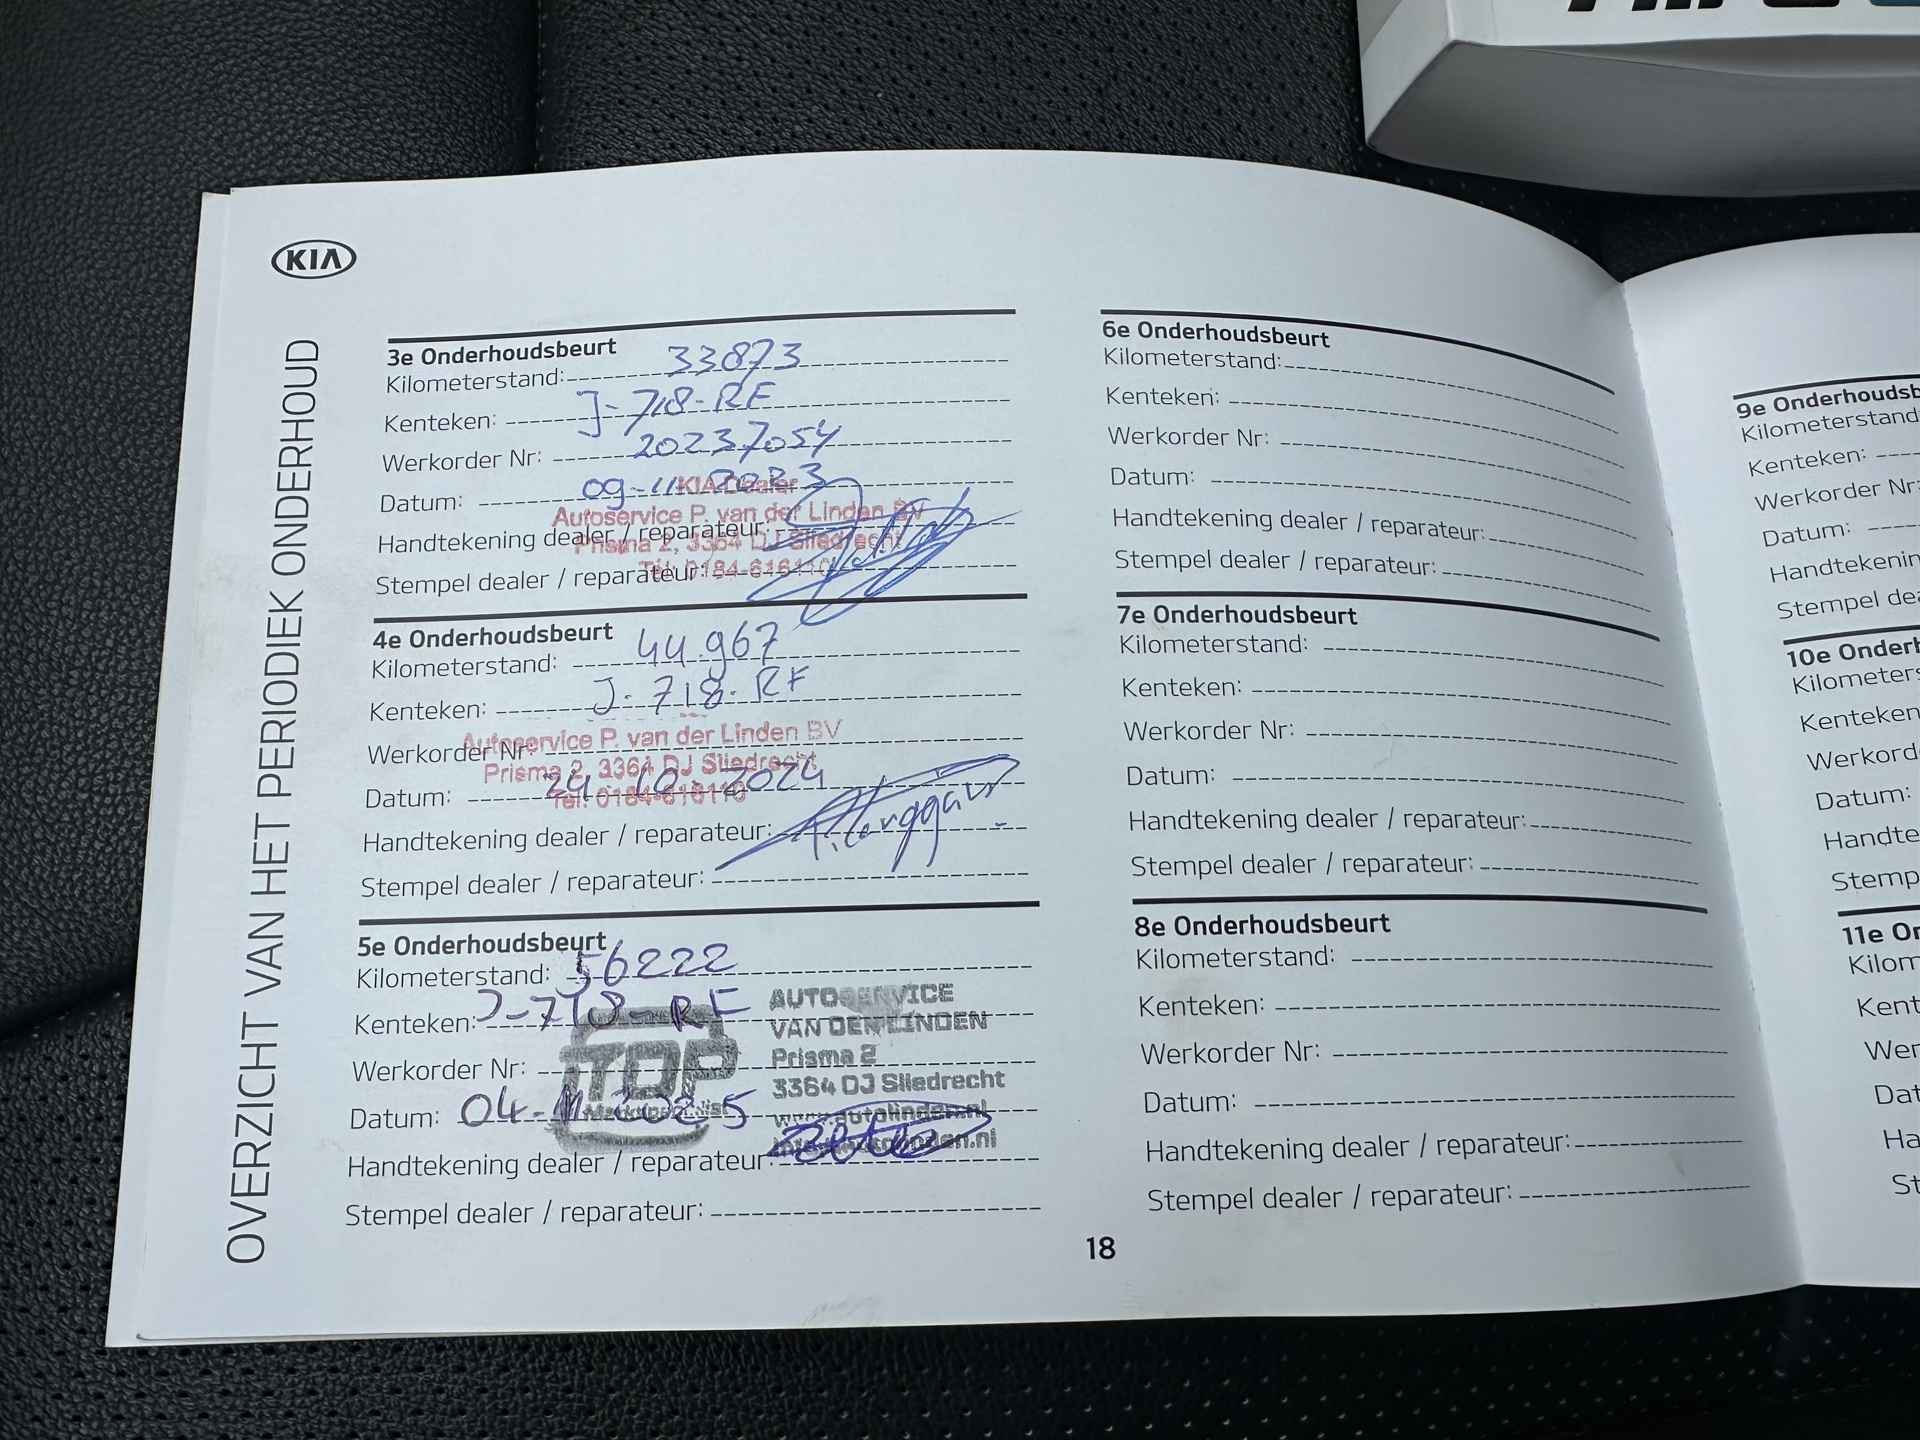 KIA
OVERZICHT VAN HET PERIODIEK ONDERHOUD
3e Onderhoudsbeurt
Kilometerstand: 33873
Kenteken: J-718-RF
Werkorder Nr: 20237054
Datum: 09-11-2023
KIA Dealer
Autoservice P. van der Linden BV
Handtekening dealer / reparateur:
Prisma 2, 3364 DJ Sliedrecht
Stempel dealer / reparateur:
Tel. 0184-616110
4e Onderhoudsbeurt
Kilometerstand: 44.967
Kenteken: J-718-RF
Autoservice P. van der Linden BV
Werkorder Nr:
Prisma 2, 3364 DJ Sliedrecht
Datum: 24-10-2024
Tel. 0184-616110
Handtekening dealer / reparateur:
Stempel dealer / reparateur:
5e Onderhoudsbeurt
Kilometerstand: 56222
Kenteken: J-718-RF
AUTOSERVICE
VAN DER LINDEN
Prisma 2
3364 DJ Sliedrecht
www.autolinden.nl
Werkorder Nr:
TOP
Datum: 04-11-2025
Handtekening dealer / reparateur:
Stempel dealer / reparateur:
6e Onderhoudsbeurt
Kilometerstand:
Kenteken:
Werkorder Nr:
Datum:
Handtekening dealer / reparateur:
Stempel dealer / reparateur:
7e Onderhoudsbeurt
Kilometerstand:
Kenteken:
Werkorder Nr:
Datum:
Handtekening dealer / reparateur:
Stempel dealer / reparateur:
8e Onderhoudsbeurt
Kilometerstand:
Kenteken:
Werkorder Nr:
Datum:
Handtekening dealer / reparateur:
Stempel dealer / reparateur:
18
9e Onderhoudsb
Kilometerstand
Kenteken:
Werkorder Nr:
Datum:
Handtekenin
Stempel dea
10e Onderh
Kilometers
Kenteken
Werkord
Datum:
Handte
Stemp
11e On
Kilom
Kent
Wer
Dat
Ha
St